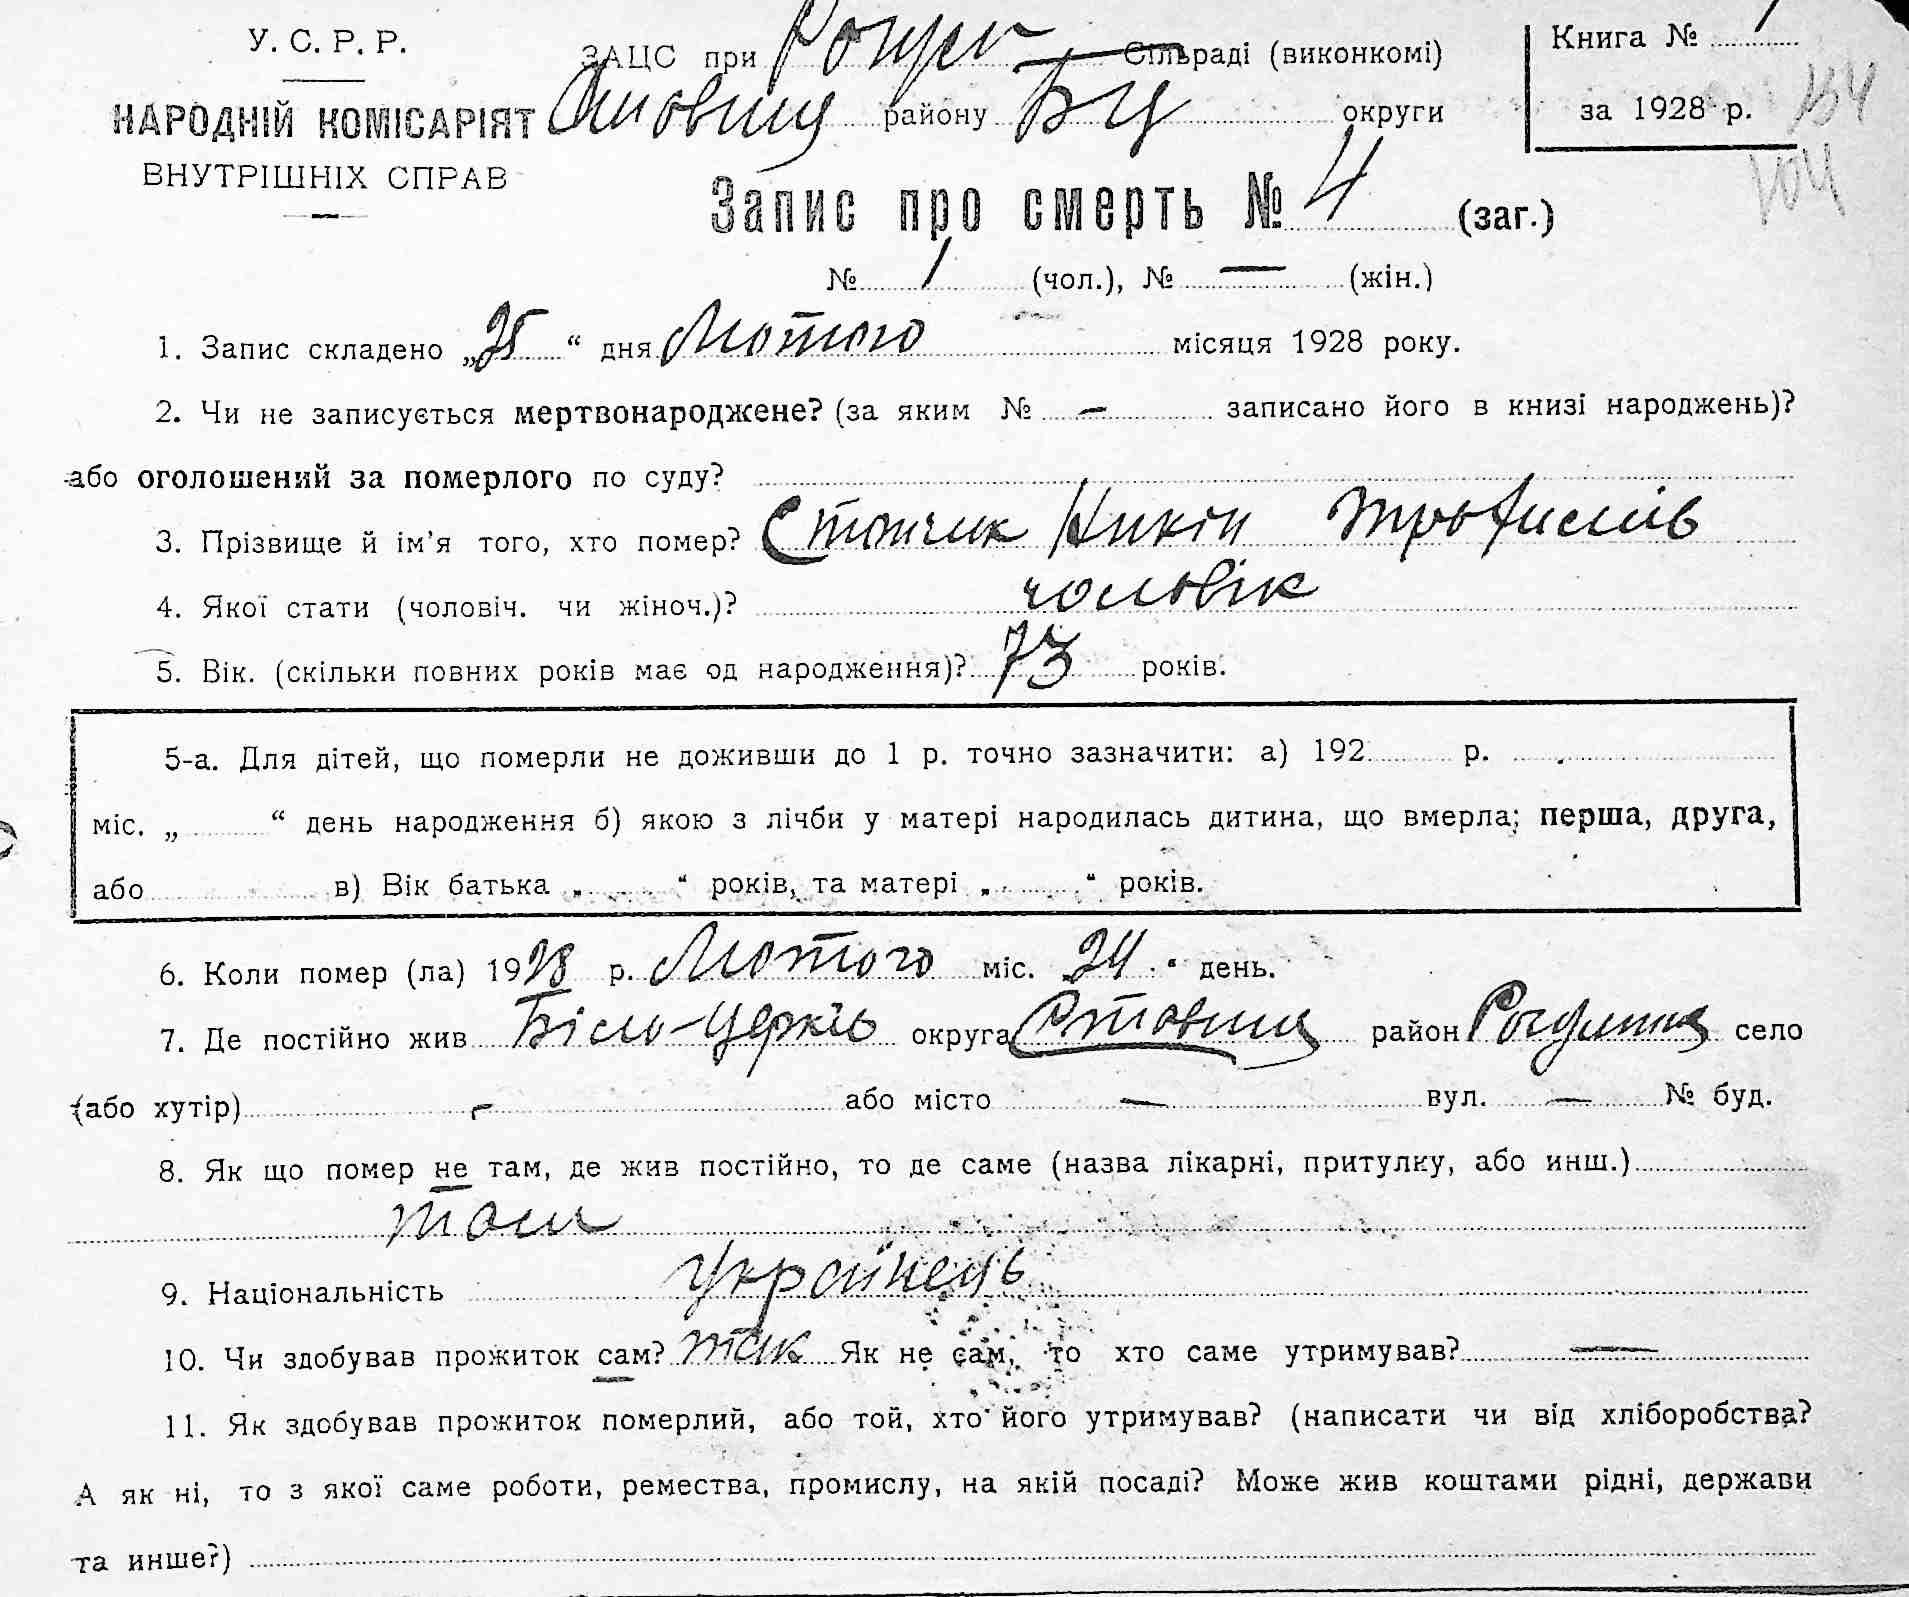 У. С. Р. Р.
НАРОДНІЙ КОМІСАРІЯТ
ВНУТРІШНІХ СПРАВ
ЗАЦС при Сільраді (виконкомі)
району БЦ округи
Книга № 1
за 1928 р. 154
104
Запис про смерть № 4 (заг.)
№ 1 (чол.), № — (жін.)
1. Запис складено „25“ дня Лютого місяця 1928 року.
2. Чи не записується мертвонароджене? (за яким № — записано його в книзі народжень)?
або оголошений за померлого по суду?
3. Прізвище й ім'я того, хто помер?
4. Якої стати (чоловіч. чи жіноч.)? чоловік
5. Вік. (скільки повних років має од народження)? 73 років.
5-а. Для дітей, що померли не доживши до 1 р. точно зазначити: а) 192 р.
міс. „ “ день народження б) якою з лічби у матері народилась дитина, що вмерла; перша, друга,
або в) Вік батька „ “ років, та матері „ “ років.
6. Коли помер (ла) 1928 р. Лютого міс. 24 “ день.
7. Де постійно жив Біло-Церків округа район село
(або хутір) - або місто — вул. — № буд.
8. Як що помер не там, де жив постійно, то де саме (назва лікарні, притулку, або инш.)
там
9. Національність Українець
10. Чи здобував прожиток сам? так Як не сам, то хто саме утримував? —
11. Як здобував прожиток померлий, або той, хто його утримував? (написати чи від хліборобства?
А як ні, то з якої саме роботи, ремества, промислу, на якій посаді? Може жив коштами рідні, держави
та инше?)